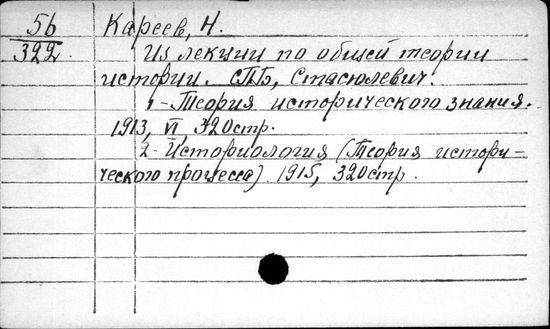 56
322
Кареев, Н.
Из лекции по общей теории
истории. СПБ, Стасюлевич.
1-Теория исторического знания.
1913, VI, 320стр.
2-Историология (Теория истори-
ческого процесса). 1915, 320стр.